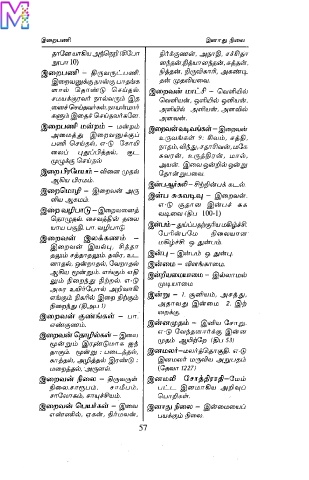 இறைபணி
இனாது நிலை
தாளேயாகிய அந்நெறி (சிபோ
நூபா 10)
இறைபணி – திருவருட்பணி.
இறைவனுக்கு நால்கு பாதங்க
ளால் தொண்டு செய்தல்.
சமயக்குரவர் நால்வரும் இத
னைச் செய்தவர்கள். நாயன்மார்
களும் இதைச் செய்தவர்களே.
இறைபணி மன்றம் – மன்றம்
அமைத்து இறைவனுக்குப்
பணி செய்தல், எ-டு கோயி
லைப் புதுப்பித்தல், குட
முழுக்கு செய்தல்
இறைபிரமியம் – வினை முதல்
ஆகிய பிரமம்.
இறைமொழி – இறைவன் அரு
ளிய ஆகமம்.
இறை வழிபாடு – இறைவனைத்
தொழுதல். சைவத்தின் தலை
யாய பகுதி. பா. வழிபாடு.
இறைவன் இலக்கணம் –
இறைவன் இயல்பு, சித்தா
தலும் சத்தாதலும் தவிர, உட
னாதல், ஒன்றாதல், வேறாதல்
ஆகிய மூன்றும். எங்கும் எதி
லும் நிறைந்து நிற்றல். எ-டு
அகர உயிர்போல் அறிவாகி
எங்கும் நிகரில் இறை நிற்கும்
நிறைந்து (தி.அ.1)
இறைவன் குணங்கள் – பா.
எண்குணம்.
இறைவன் தொழில்கள் – இவை
மூன்றும் இரண்டுமாக ஐந்
தாகும். மூன்று : படைத்தல்,
காத்தல், அழித்தல் இரண்டு :
மறைத்தல், அருளல்.
இறைவன் நிலை – திருவருள்
நிலை. சாரூபம், சாமீபம்,
சாலோகம், சாயுச்சியம்.
இறைவன் பெயர்கள் – இவை
எண்ணில், ஏகன், நிர்மலன்,
நிர்க்குணன், அநாதி, சச்சிதா
னந்தன் நித்யானந்தன், சுத்தன்,
நித்தன், நிருவிகாரி, அகண்டி
தன் முதலியவை.
இறைவன் மாட்சி – வெளியில்
வெளியன், ஒளியில் ஒளியன்,
அளியில் அளியன், அளவில்
அளவன்.
இறைவன் வடிவங்கள் – இறைவன்
உருவங்கள் 9: சிவம், சத்தி,
நாதம், விந்து, சதாசிவன், மகே
சுவரன், உருத்திரன், மால்,
அயன். இவை ஒன்றில் ஒன்று
தோன்றுபவை.
இன்பதுர்களி – சிற்றின்பக் கடல்.
இன்ப சுகவடிவு – இறைவன்.
எ-டு குதான இன்பச் சுக
வடிவை (திப 100-1)
இன்பம் – துய்ப்பதற்குரிய மகிழ்ச்சி.
பேரின்பமே நிலையான
மகிழ்ச்சி ஒ. துன்பம்.
இன்பு – இன்பம் ஒ துன்பு.
இன்மை – விளங்காமை.
இன்றியமையாமை – இல்லாமல்
முடியாமை
இன்று – 1. சூனியம், அசத்து,
அதாவது இன்மை 2. இற்
றைக்கு.
இன்னமுதம் – இனிய சோறு.
எ-டு வேந்தனார்க்கு இன்ன
முதம் ஆயிற்றே (திப 53)
இனமலர் – மலர்த்தொகுதி. எ-டு
இனமலர் மருவிய அறுபதம்
(தேவா 1227)
இனமலி சோத்திராதி – மேம்
பட்ட இனமாகிய அறிவுப்
பொறிகள்.
இனாது நிலை – இன்மையைப்
பயக்கும் நிலை.
57